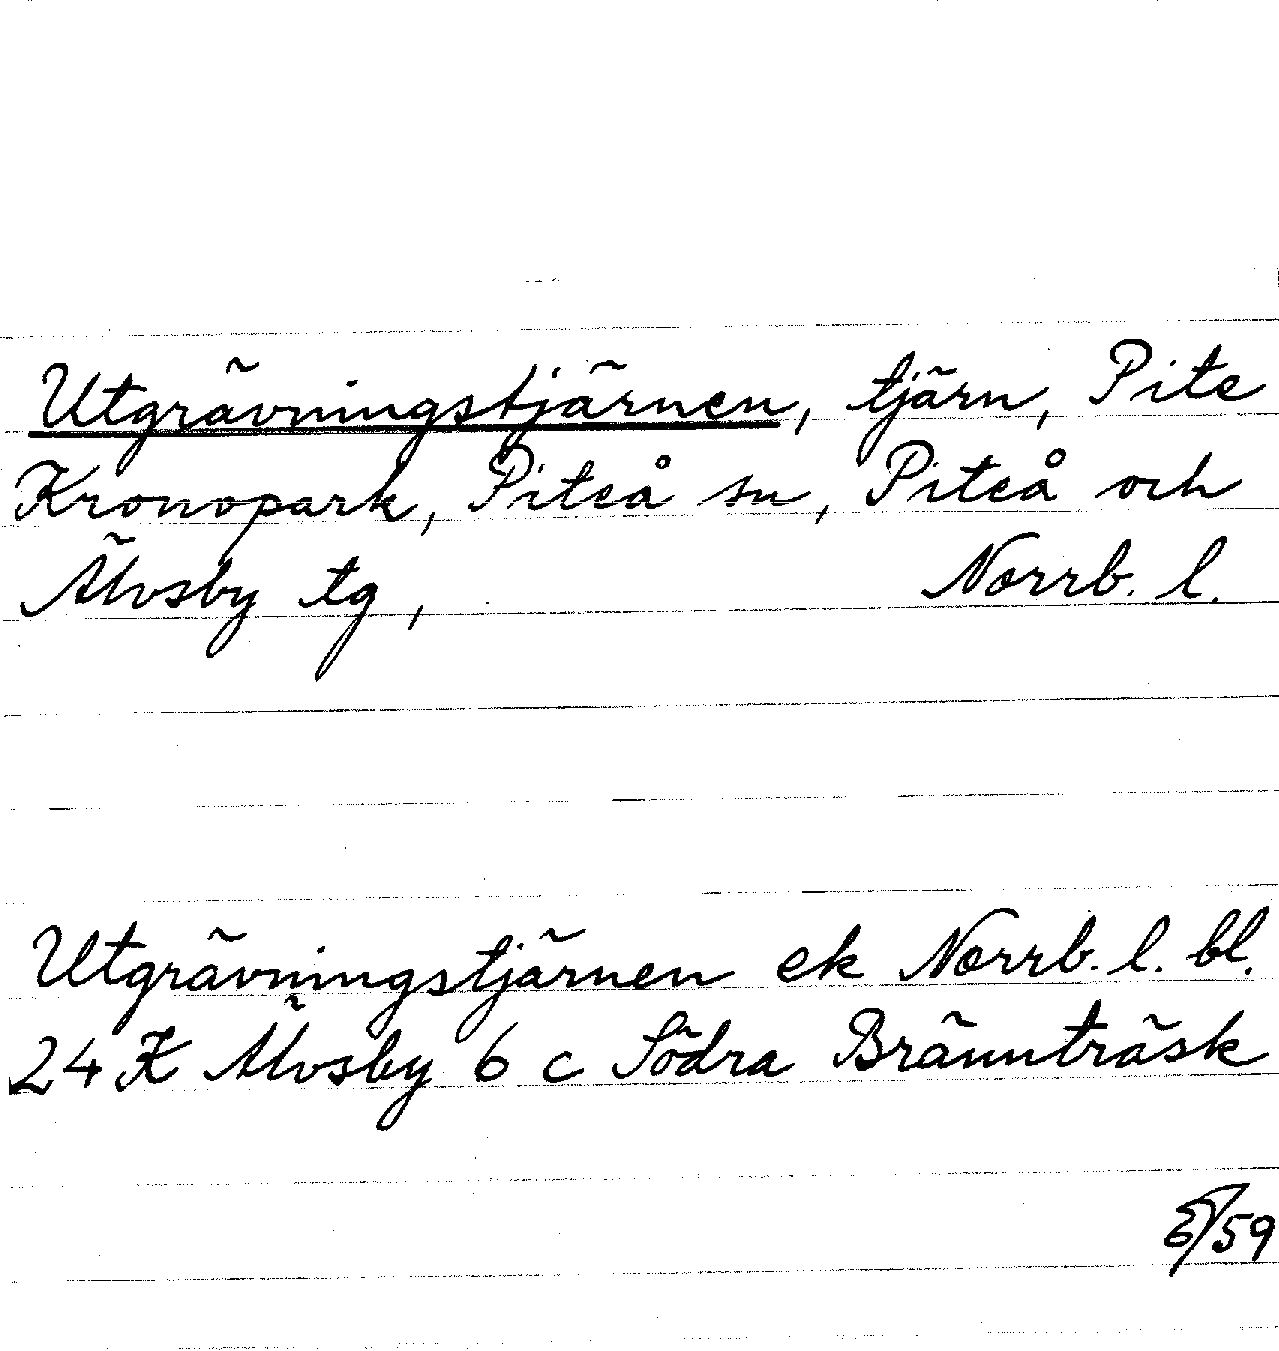 Utgrävningstjärnen, tjärn, Pite
Kronopark, Piteå sn, Piteå och
Älvsby tg, Norrb. l.
Utgrävningstjärnen ek Norrb. l. bl.
24 K Älvsby 6 c Södra Brännträsk
/59